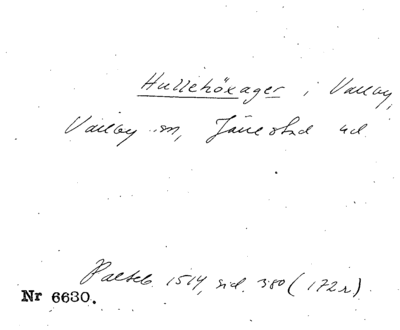 Hullehöxager i Vallby,
Vallby sn, Järrestad hd.
Palteb. 1514, sid. 380 (172 r)
Nr 6630.